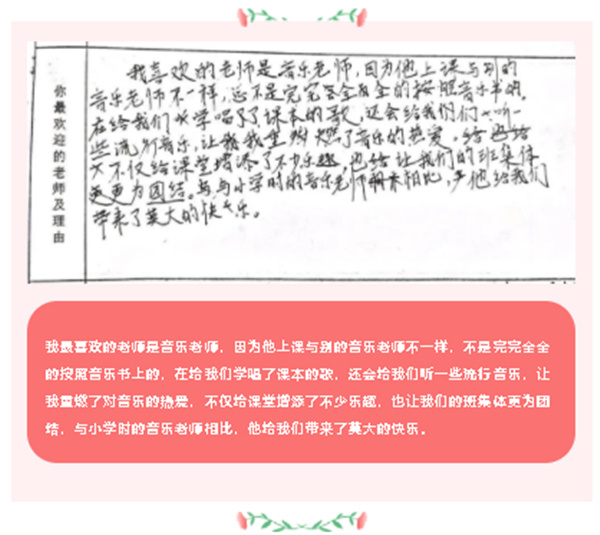 你最欢迎的老师及理由
我喜欢的老师是音乐老师,因为他上课与别的
音乐老师不一样,不是完完全全的按照音乐书的,
在给我们学唱了课本的歌,还会给我们听一
些流行音乐,让我重燃了音乐的热爱。
不仅给课堂增添了不少乐趣,也让我们的班集体
更为团结。与小学时的音乐老师相比,他给我们
带来了莫大的快乐。
我最喜欢的老师是音乐老师，因为他上课与别的音乐老师不一样，不是完完全全
的按照音乐书上的，在给我们学唱了课本的歌，还会给我们听一些流行音乐，让
我重燃了对音乐的热爱，不仅给课堂增添了不少乐趣，也让我们的班集体更为团
结，与小学时的音乐老师相比，他给我们带来了莫大的快乐。